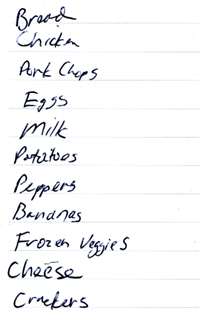 Bread
Chicken
Pork Chops
Eggs
Milk
Potatoes
Peppers
Bananas
Frozen Veggies
Cheese
Crackers